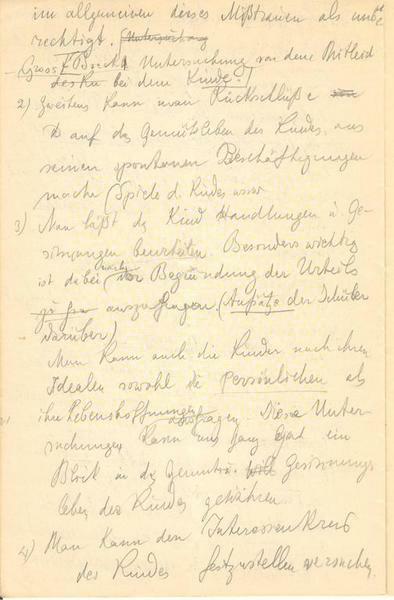 im allgemeinen dieses Mißtrauen als unbe
rechtigt.
Untersuchung von dem Mitleid
bei dem Kinde.
2) Zweitens kann man Rückschlüße
auf das Gemütsleben des Kindes aus
seinen spontanen Beschäftigungen
mache (Spiele d. Kindes usw
3) Man läßt das Kind Handlungen u. Ge-
sinnungen beurteilen Besonders wichtig
ist dabei nach der Begründung der Urteils
auszufragen (Aufsätze der Schüler
darüber)
Man kann auch die Kinder nach ihren
Idealen sowohl die Persönlichen als
ihre Lebenshoffnungen ausfragen Diese Unter-
suchungen kann uns ein
Blick in die Gesinnungs
leben des Kindes gewähren
4) Man kann den Interessenkreis
des Kindes festzustellen versuchen.